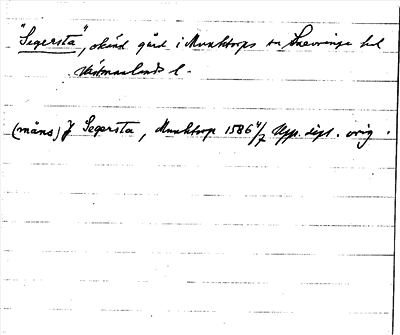 "Segersta", okänd gård i Munktorps sn Snevringe hd
Västmanlands l.
(måns) J Segersta, Munktorp 1586 4/7 Upps. dipl. orig.